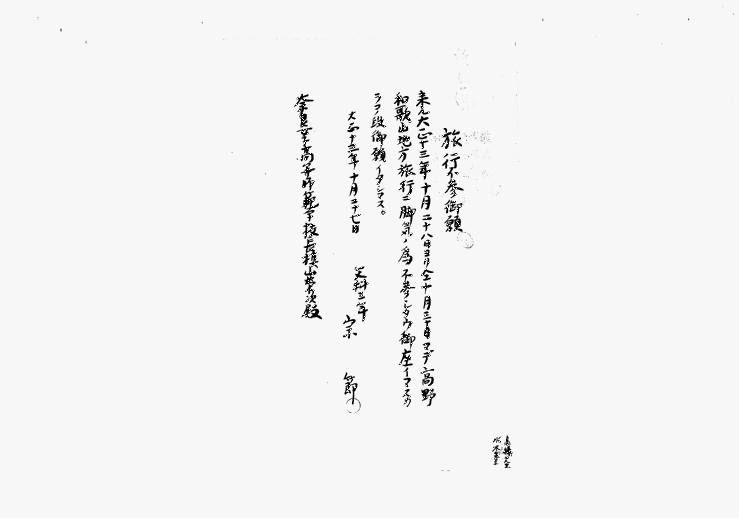 旅行不参御願
来ル大正十三年十月二十八日ヨリ仝十月三十日マデ高野
和歌山地方旅行ニ脚気ノ為不参シタク御座イマスカ
ラコノ段御願イタシマス。
大正十三年十月二十七日
文科三年
宗 節
奈良女子高等師範学校長槇山栄次殿